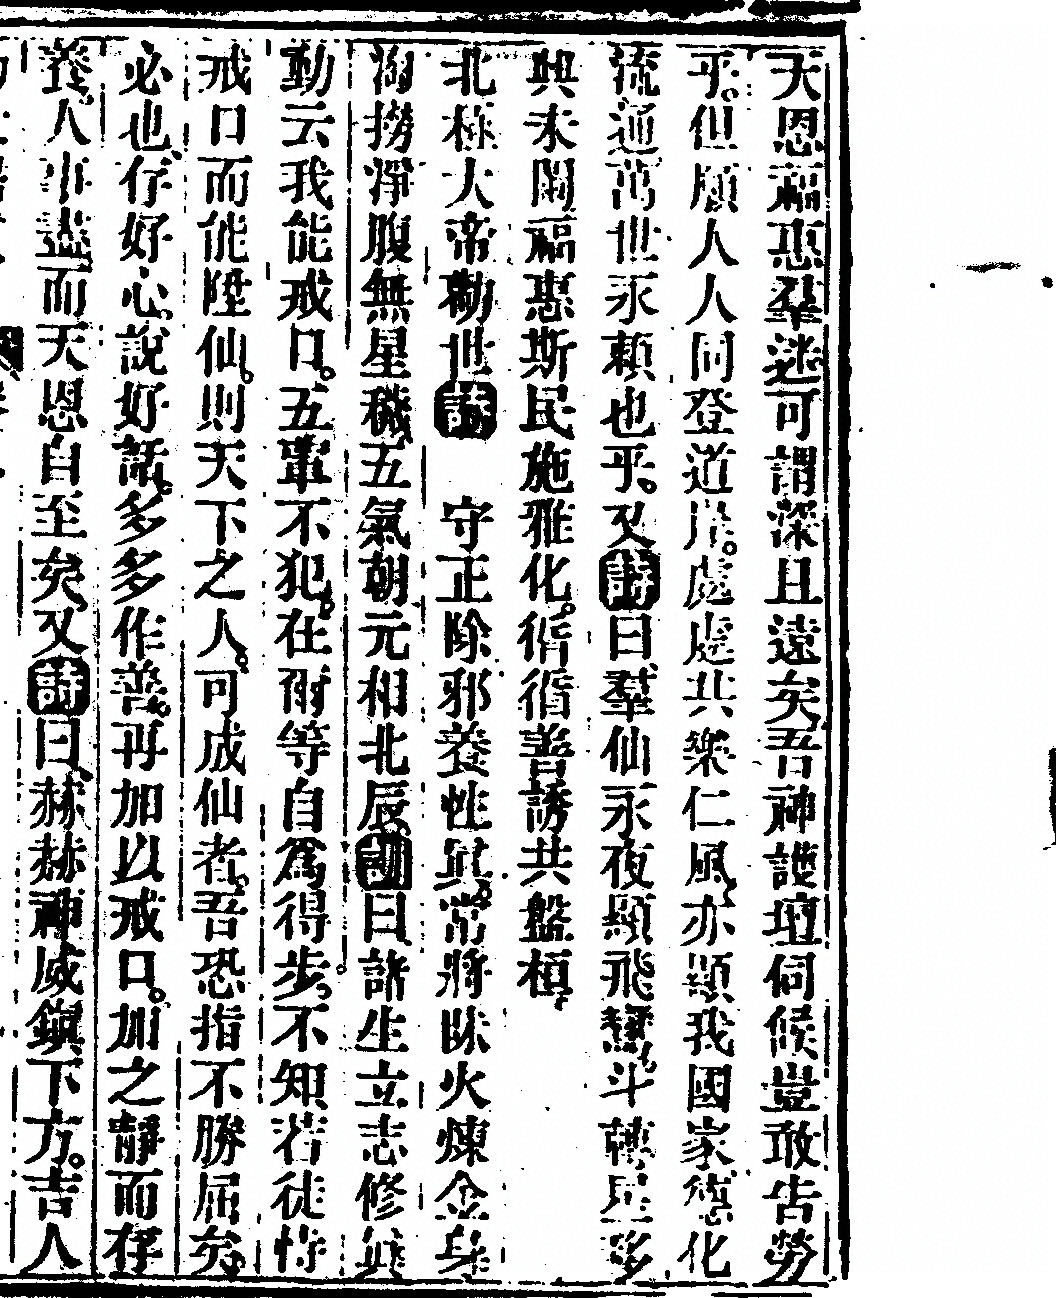 天恩福惠羣迷可謂深且遠矣吾神護壇伺候豈敢告勞
乎但願人人同登道岸處處共樂仁風亦顯我國家德化
流通萬世永賴也乎又詩曰羣仙永夜顯飛鸞斗轉星移
興未闌福惠斯民施雅化循循善誘共盤桓
北極大帝勸世詩 守正除邪養性眞常將昧火煉金身
海撈淨腹無星穢五氣朝元相北辰訓曰諸生立志修眞
動云我能戒口五葷不犯在爾等自爲得步不知若徒恃
戒口而能陞仙則天下之人可成仙者吾恐指不勝屈矣
必也存好心說好話多多作善再加以戒口加之靜而存
養人事盡而天恩自至矣又詩曰赫赫神威鎭下方吉人